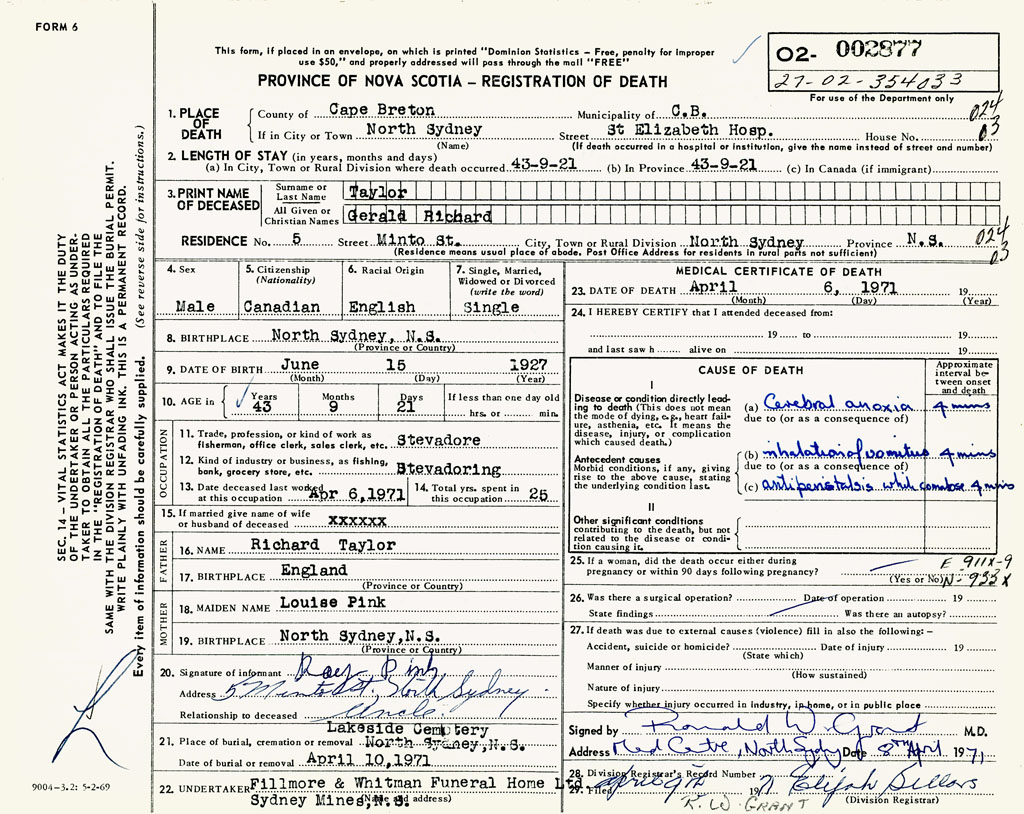 FORM 6
This form, if placed in an envelope, on which is printed "Dominion Statistics — Free, penalty for improper
use $50," and properly addressed will pass through the mail "FREE"
PROVINCE OF NOVA SCOTIA — REGISTRATION OF DEATH
02- 002877
27-02-354033
For use of the Department only
1. PLACE OF DEATH
County of Cape Breton Municipality of C.B. 024
If in City or Town North Sydney Street St Elizabeth Hosp. House No. 03
(Name) (If death occurred in a hospital or institution, give the name instead of street and number)
2. LENGTH OF STAY (in years, months and days)
(a) In City, Town or Rural Division where death occurred 43-9-21 (b) In Province 43-9-21 (c) In Canada (if immigrant)
3. PRINT NAME OF DECEASED
Surname or Last Name Taylor
All Given or Christian Names Gerald Richard
RESIDENCE No. 5 Street Minto St. City, Town or Rural Division North Sydney Province N.S. 024
(Residence means usual place of abode. Post Office Address for residents in rural parts not sufficient) 03
4. Sex
Male
5. Citizenship
(Nationality)
Canadian
6. Racial Origin
English
7. Single, Married,
Widowed or Divorced
(write the word)
Single
8. BIRTHPLACE North Sydney, N.S.
(Province or Country)
9. DATE OF BIRTH June 15 1927
(Month) (Day) (Year)
10. AGE in Years Months Days If less than one day old
43 9 21 hrs. or min.
OCCUPATION
11. Trade, profession, or kind of work as
fisherman, office clerk, sales clerk, etc. Stevadore
12. Kind of industry or business, as fishing,
bank, grocery store, etc. Stevadoring
13. Date deceased last worked
at this occupation Apr 6,1971
14. Total yrs. spent in
this occupation 25
15. If married give name of wife
or husband of deceased xxxxxx
FATHER
16. NAME Richard Taylor
17. BIRTHPLACE England
(Province or Country)
MOTHER
18. MAIDEN NAME Louise Pink
19. BIRTHPLACE North Sydney,N.S.
(Province or Country)
20. Signature of informant Roy Pink
Address 5 Minto St, North Sydney
Relationship to deceased Uncle
Lakeside Cemetery
21. Place of burial, cremation or removal North Sydney,N.S.
Date of burial or removal April 10,1971
22. UNDERTAKER Fillmore & Whitman Funeral Home Ltd
Sydney Mines,N.S.
(Name and address)
MEDICAL CERTIFICATE OF DEATH
23. DATE OF DEATH April 6, 1971 19
(Month) (Day) (Year)
24. I HEREBY CERTIFY that I attended deceased from:
19 to 19
and last saw h alive on 19
CAUSE OF DEATH
Approximate
interval be-
tween onset
and death
I
Disease or condition directly lead-
ing to death (This does not mean
the mode of dying, e.g., heart fail-
ure, asthenia, etc. It means the
disease, injury, or complication
which caused death.)
(a) Cerebral anoxia 4 mins
due to (or as a consequence of)
Antecedent causes
Morbid conditions, if any, giving
rise to the above cause, stating
the underlying condition last.
(b) inhalation of vomitus 4 mins
due to (or as a consequence of)
(c) antiperistalsis while comatose 4 mins
II
Other significant conditions
contributing to the death, but not
related to the disease or condi-
tion causing it.
25. If a woman, did the death occur either during
pregnancy or within 90 days following pregnancy?
(Yes or No)
E 911X-9
N-933X
26. Was there a surgical operation? Date of operation 19
State findings Was there an autopsy?
27. If death was due to external causes (violence) fill in also the following:—
Accident, suicide or homicide? Date of injury 19
(State which)
Manner of injury
(How sustained)
Nature of injury
Specify whether injury occurred in industry, in home, or in public place
Signed by Ronald W. Grant M.D.
Address Med Centre, North Sydney Date 8TH April 1971
28. Division Registrar's Record Number
29. Filed April 9th 1971 Elijah Sellars
R. W. GRANT (Division Registrar)
SEC. 14 — VITAL STATISTICS ACT MAKES IT THE DUTY
OF THE UNDERTAKER OR PERSON ACTING AS UNDER-
TAKER TO OBTAIN ALL THE PARTICULARS REQUIRED
IN THE "REGISTRATION OF DEATH" AND TO FILE THE
SAME WITH THE DIVISION REGISTRAR WHO SHALL ISSUE THE BURIAL PERMIT.
WRITE PLAINLY WITH UNFADING INK. THIS IS A PERMANENT RECORD.
Every item of information should be carefully supplied. (See reverse side for instructions.)
9004-3.2: 5-2-69